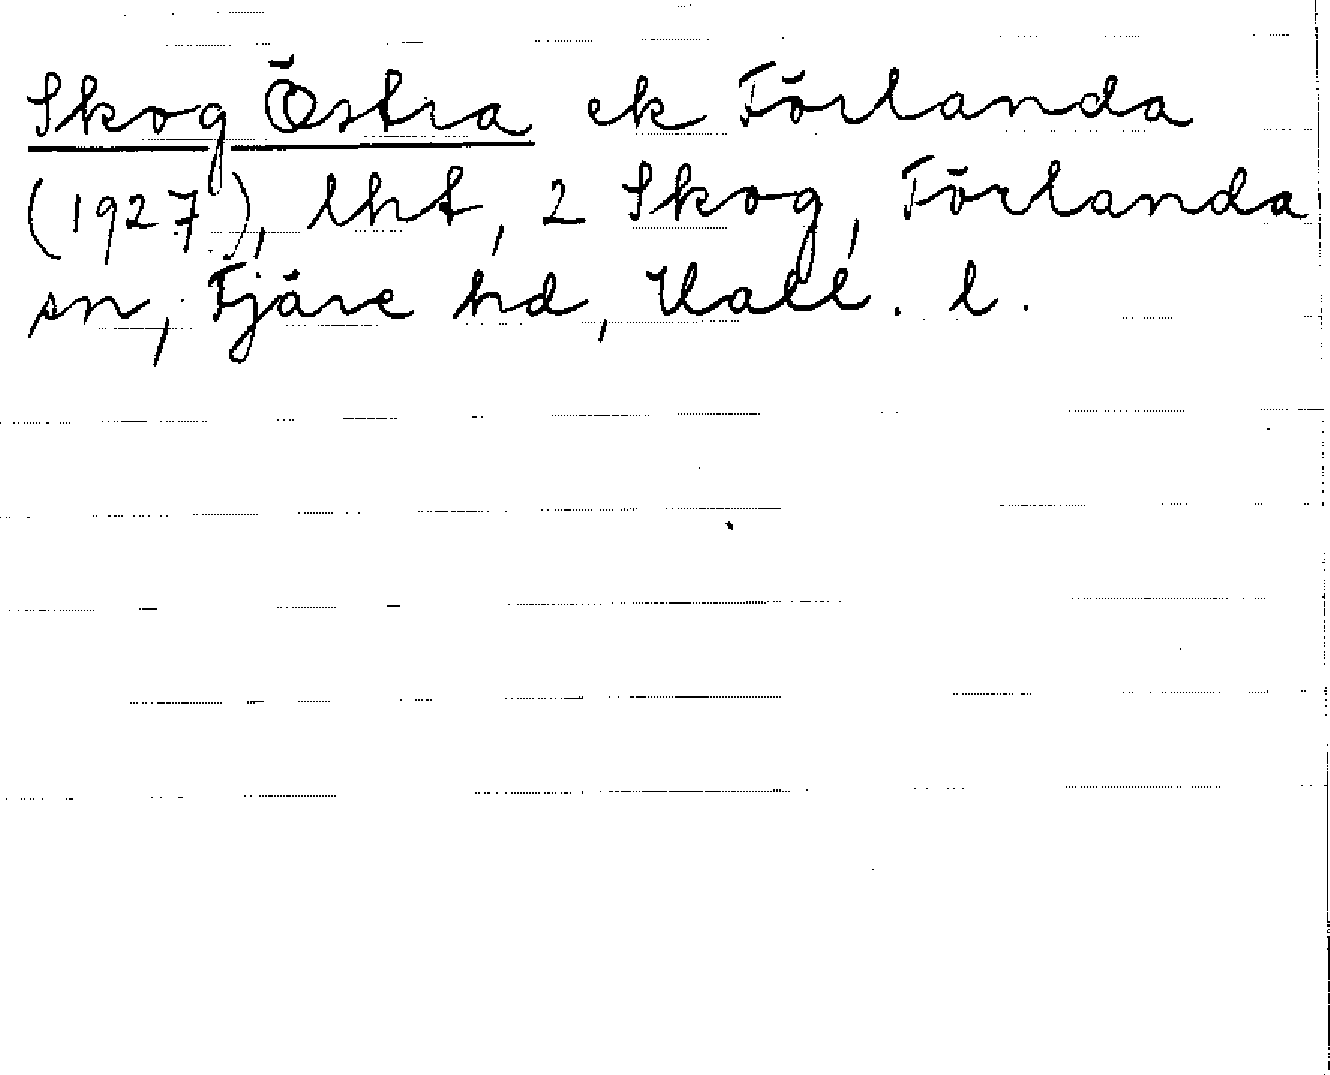 Skog Östra ek Förlanda
(1927), lht, 2 Skog, Förlanda
sn, Fjäre hd, Hall. l.